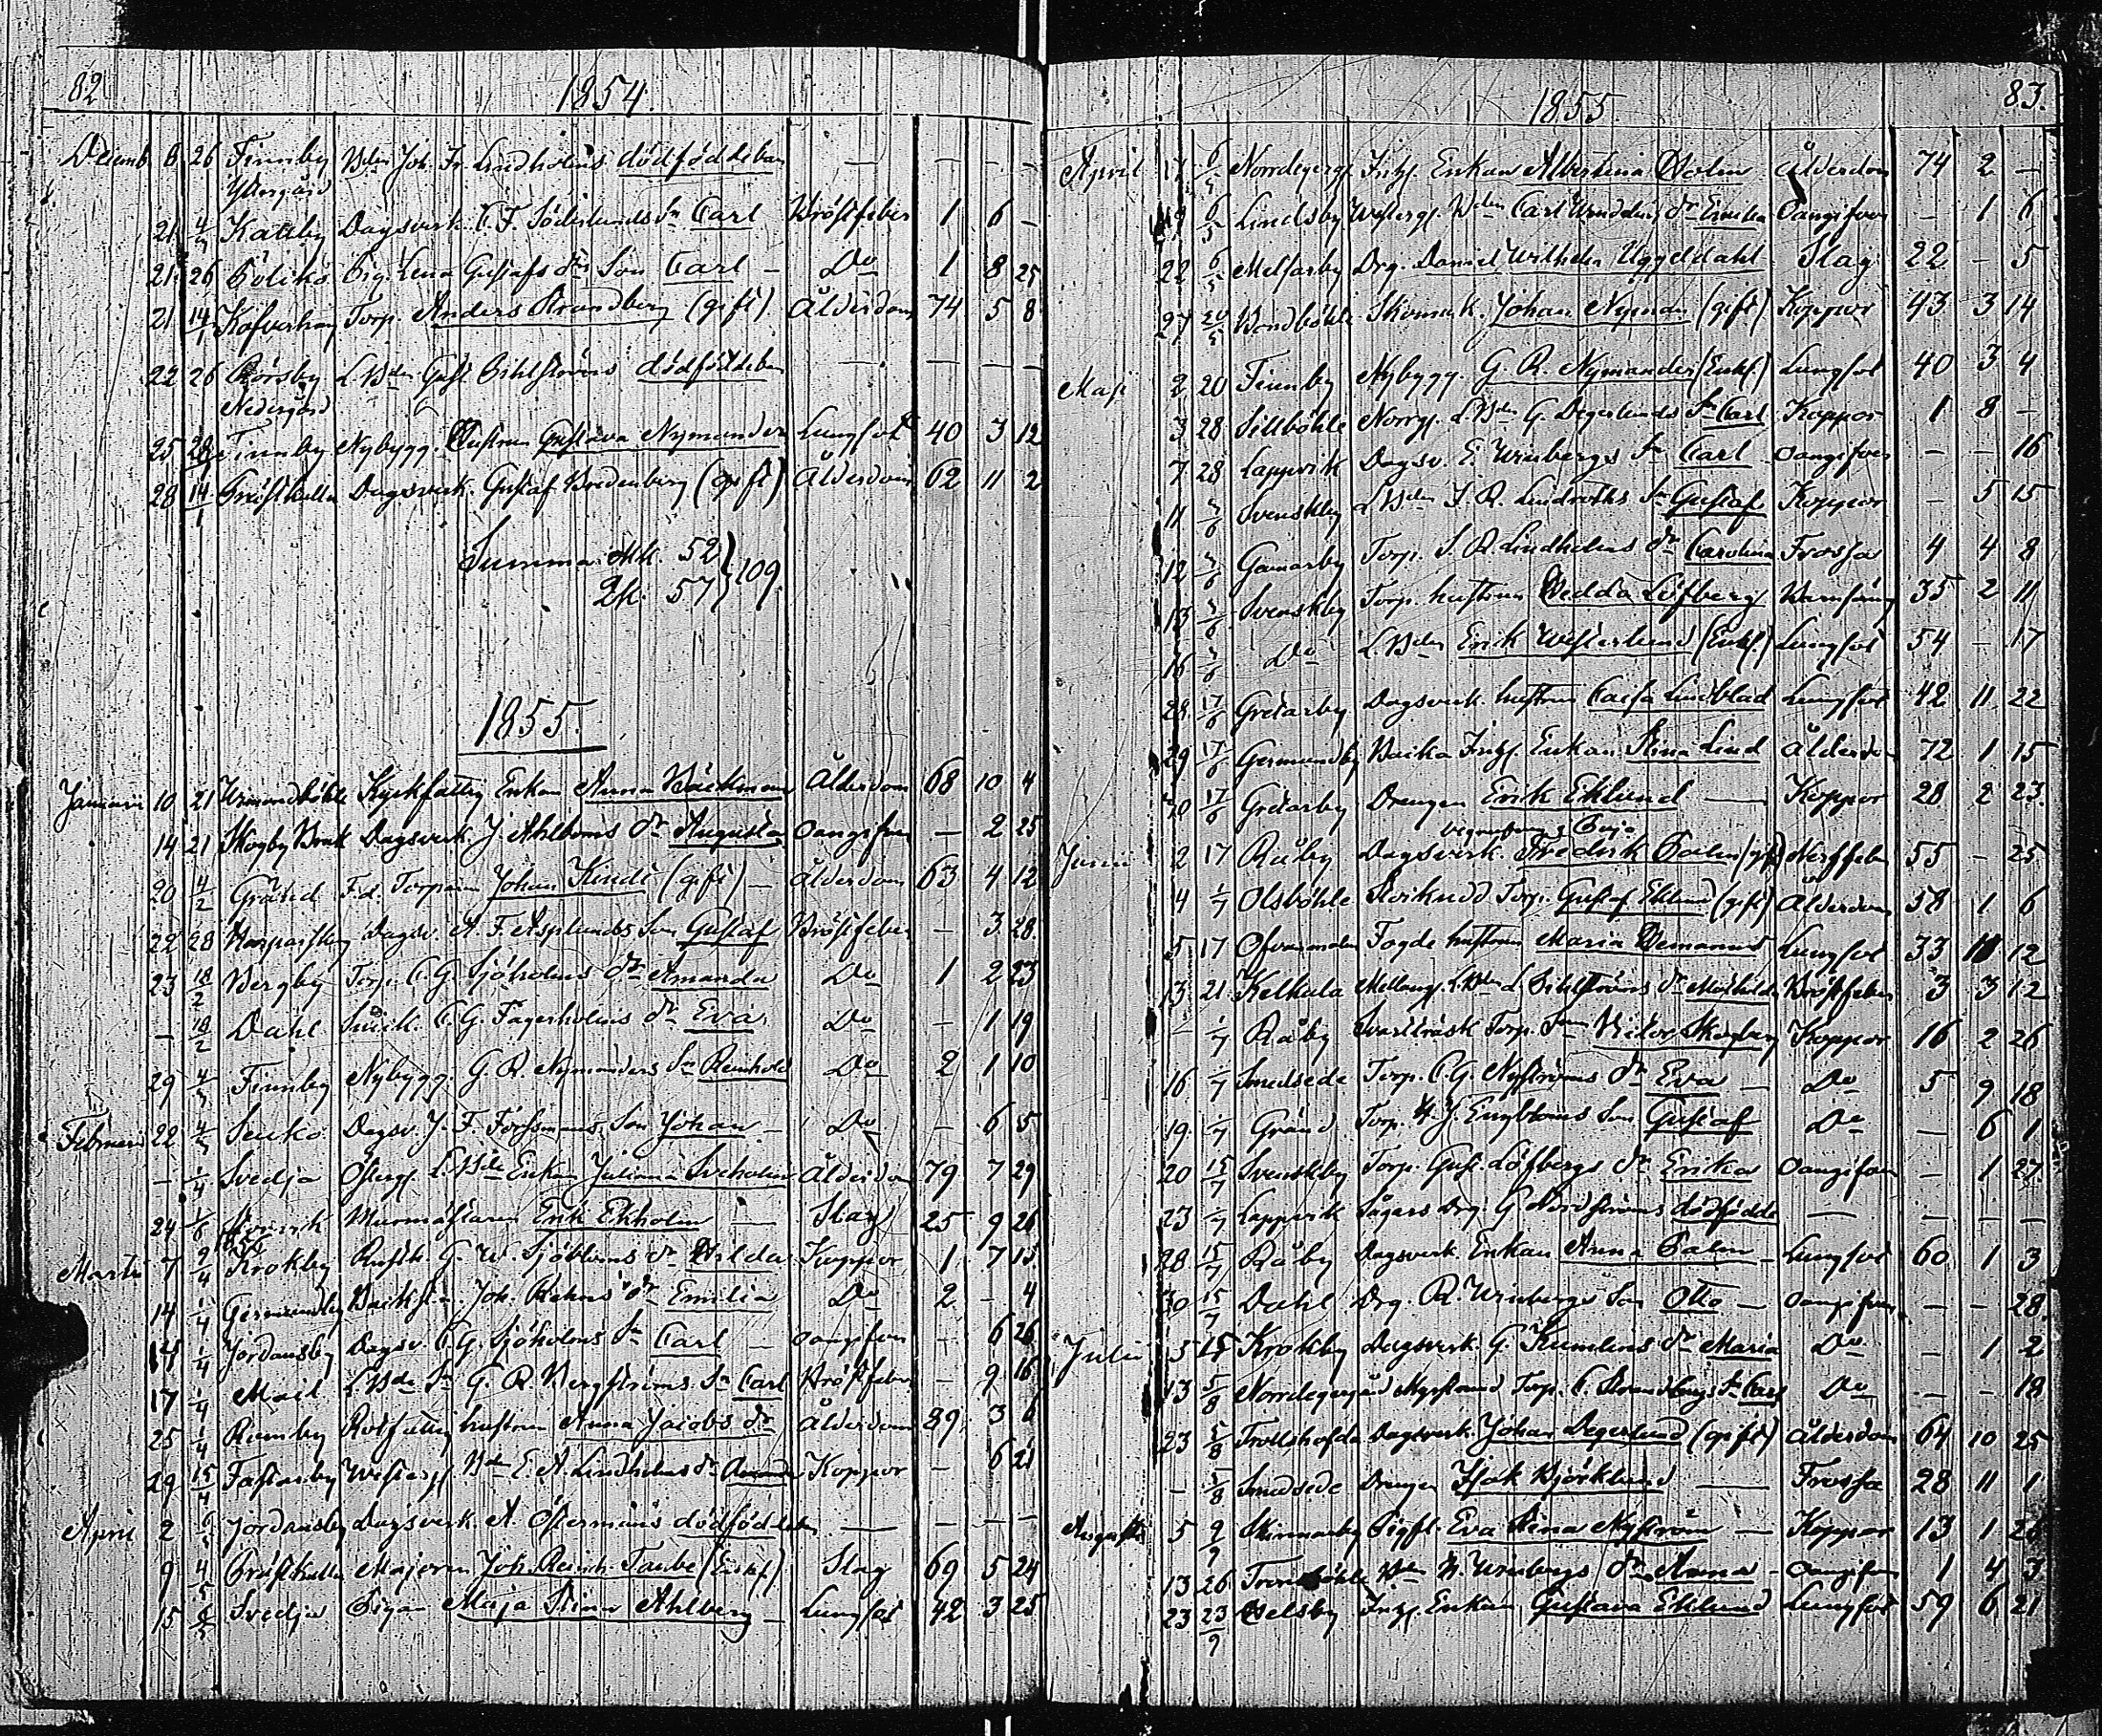 82
1854.
Decemb 8 26 Finnby Bdn Joh. Fr. Lindholms dödfödde barn — — — —
Yttergård
21 4/1 Kattby Dagsverk. C. F. Söderlunds Sn Carl Bröstfeber 1 6 —
21 26 Böliks Pig. Lena Gustafs dtrs Son Carl — Do 1 8 25
21 14/1 Kofverhag Torp. Anders Strandberg (gift) Ålderdom 74 5 8
22 26 Börsby LBdn Gust. Bihlströms dödfödde barn — — — —
Nedergård
25 28 Finnby Nybygg. Hustrun Gustava Nymander Lungsot 40 3 12
28 14/1 Prästkulla Dagsverk. Gustaf Bredenberg (gift) Ålderdom 62 11 2
Summa Mk. 52
Qk. 57 } 109.
1855.
Januari 10 21 Kyrkfattig Enkan Anna Bäckman Ålderdom 68 10 4
14 21 Skogby Bruk Dagsverk. J Ahlboms dr Augusta oangifven — 2 25
20 4/2 Gränd F.d. Torparen Johan Kinde (gift) — Ålderdom 63 4 12
22 28 Dagsv. A. F. Asplunds Son Gustaf Bröstfeber — 3 28
23 18/2 Bergby Torp. C. G. Sjöholms dr Amanda Do 1 2 23
— 18/2 Dahl C. G. Fagerholms dr Eva Do — 1 19
29 4/3 Finnby Nybygg. G. R. Nymanders Sn Reinhold Do 2 1 10
Februari 22 4/3 Senko Dagsv. J. F. Forssmans Son Johan — Do — 6 5
— 1/4 Svedja Österg. LBde Enkan Juliana Sveholm Ålderdom 79 7 29
24 Murmästaren Erik Ekholm — Slag 25 9 26
Martii 7 9/4 Krokby Rustk. G. W. Sjöbloms dr Hilda Koppor 1 7 15
14 1/4 Germundby Joh. Rehns dr Emilia Do 2 — 4
14 1/4 Jordansby Dagsv. C. G. Sjöholms Sn Carl — oangifven — 6 26
17 1/4 Mail LBde Sn G. R Bergströms Sn Carl Bröstfeber — 9 16
25 1/4 Ramsby Rotfattig hustrun Anna Jacobs dr Ålderdom 89 3 6
29 15/4 Fastarby Westerg. Bdn E. A. Lindholms dr Amanda Koppor — 6 21
April 2 6/5 Jordansby Dagsverk. A. Östermans dödfödde barn — — — —
9 4/5 Prästkulla Majoren Joh. Reinh. Taube (Enkf.) Slag 69 5 24
15 6/5 Svedja Pigan Maja Stina Ahlberg — Lungsot 42 3 25
83.
1855
April 17 6/5 Norrdegerg. Inhg. Enkan Albertina Holm Ålderdom 74 2 —
19 6/5 Lindsby Westerg. Bdn Carl dr Emilia Oangifven — 1 6
22 6/5 Melfarby Drg. Daniel Wilhelm Uggeldahl Slag 22 — 5
27 20/5 Bondböhle Skomak. Johan Nyman (gift) Koppor 43 3 14
Maji 2 20 Finnby Nybygg. G. R. Nymander (Enkf.) Lungsot 40 3 4
3 28 Sillböhle Norrg. LBdn G. Degerlunds Sn Carl Koppor 1 8 —
7 28 Lappvik Dagsv. E. Winbergs Sn Carl oangifven — — 16
11 3/6 Svenskby LBdn J. R. Lindroths Sn Gustaf Koppor — 5 15
12 3/6 Gamarby Torp. S. R. Lindholms dr Carolina Frossa 4 4 8
13 3/6 Svenskby Torp. hustrun Hedda Löfberg Barnsäng 35 2 11
16 3/6 Do LBdn Erik Westerlund (Enkf.) Lungsot 54 — 17
28 17/6 Gretarby Dagsverk. hustrun Caisa Lindblad Lungsot 42 11 22
29 17/6 Germundby Backa Inhg. Enkan Stina Lind Ålderdom 72 1 15
30 17/6 Gretarby Drengen Erik Eklund — Koppor 28 2 23.
Junii 2 17 Råby Dagsverk. Fredrik Palin (gift) Nervfeber 55 — 25
4 1/7 Olsböhle Storkudd Torp. Gustaf Eklund (gift) Ålderdom 58 1 6
5 17 Fogde hustrun Maria Lungsot 33 11 12
13 21 Kelkala Mellang. LBdn L. Bihlströms dr Mathilda Bröstfeber 3 3 12
— 1/7 Råby Svartträsk Torp. Son Victor Skogberg Koppor 16 2 26
16 1/7 Smedsede Torp. C. G. Nyströms dr Eva — Do 5 9 18
19 1/7 Gränd Torp. H. J. Engbloms Son Gustaf Do — 6 1
20 15/7 Svenskby Torp. Gust. Löfbergs dr Erika Oangifven — 1 27
23 1/7 Lappvik Sågars Drg. G Nordströms dödfödde — — — —
28 15/7 Råby Dagsverk. Enkan Anna Palin — Lungsot 60 1 3
30 15/7 Dahl Drg. R. Winbergs Son Otto — oangifven — — 28.
Julii 5 15 Krokby Dagsverk. G. Kumlins dr Maria Do — 1 2
13 5/8 Norrdegergård Torp. C. Strandbergs Sn Carl Do — — 18
23 5/8 Trollshofda Dagsverk. Johan Degerlund (gift) Ålderdom 64 10 25
— 5/8 Smedsede Drengen Isak Björklund — Frossa 28 11 1
Augusti 5 9/9 Skinnarby Pigfl. Eva Stina Nyström — Koppor 13 1 26
13 26 Bdn H. Winbergs dr Anna — oangifven 1 4 3
23 23/9 Inhg. Enkan Gustava Eklund Lungsot 59 6 21